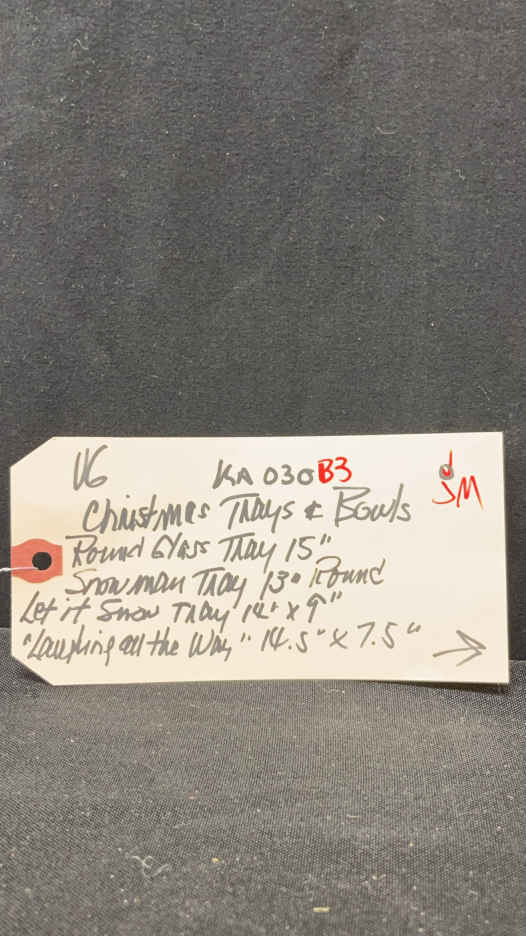 VG KA 030 B3
JM
Christmas Trays & Bowls
Round Glass Tray 15"
Snowman Tray 13" Round
Let it Snow Tray 14" x 9"
"Laughing all the Way" 14.5" x 7.5"